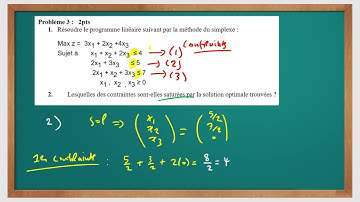 Problème 3 : 2pts
1. Résoudre le programme linéaire suivant par la méthode du simplexe :
Max z = 3x₁ + 2x₂ +4x₃
Sujet à x₁ + x₂ + 2x₃ ≤ 4 → (1) contraints
2x₁ + 3x₃ ≤ 5 → (2)
2x₁ + x₂ + 3x₃ ≤ 7 → (3)
x₁ , x₂ , x₃ ≥ 0
2. Lesquelles des contraintes sont-elles saturées par la solution optimale trouvées ?
2) Sol ⇒ (x₁ x₂ x₃) = (5/2 3/2 0)
1ère contrainte : 5/2 + 3/2 + 2(0) = 8/2 = 4